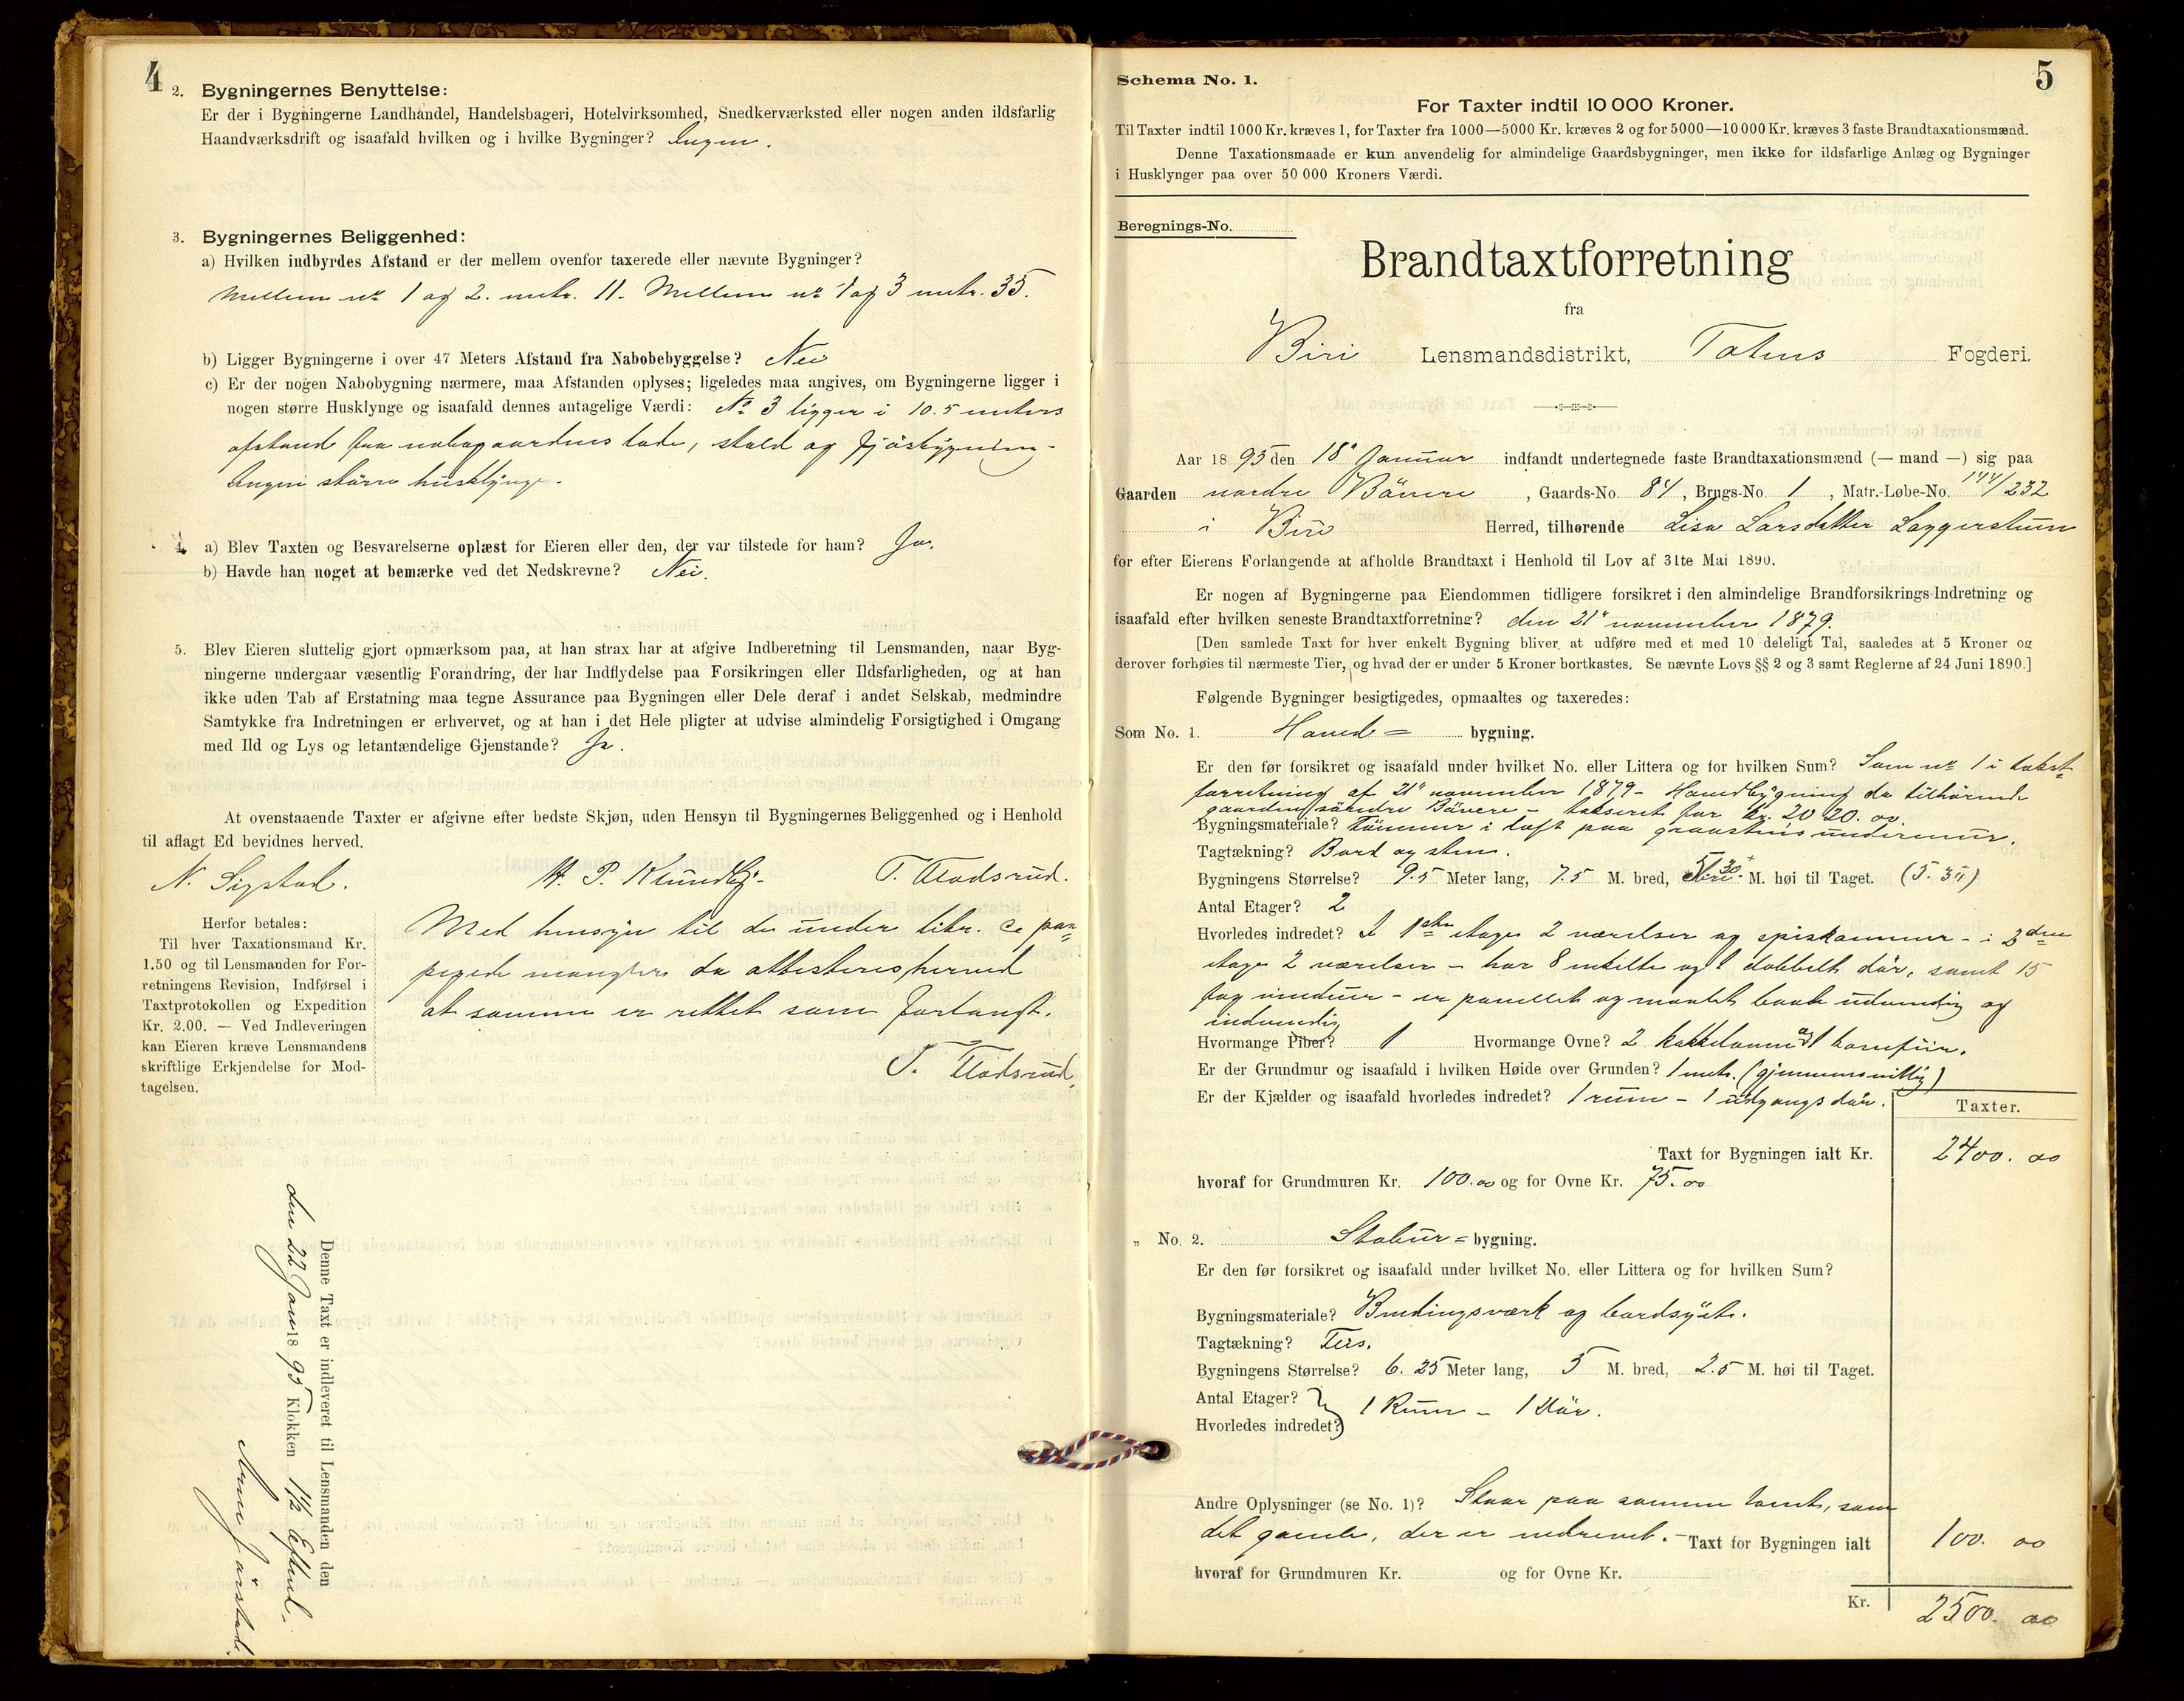 4
2. Bygningernes Benyttelse:
Er der i Bygningerne Landhandel, Handelsbageri, Hotelvirksomhed, Snedkerværksted eller nogen anden ildsfarlig
Haandværksdrift og isaafald hvilken og i hvilke Bygninger? Ingen.
3. Bygningernes Beliggenhed:
a) Hvilken indbyrdes Afstand er der mellem ovenfor taxerede eller nævnte Bygninger?
Mellem no 1 og 2. metr. 11. Mellem no 1 og 3 metr. 35.
b) Ligger Bygningerne i over 47 Meters Afstand fra Nabobebyggelse? Nei
c) Er der nogen Nabobygning nærmere, maa Afstanden oplyses; ligeledes maa angives, om Bygningerne ligger i
nogen større Husklynge og isaafald dennes antagelige Værdi: No 3 ligger i 10.5 meters
afstand fra nabogaardens lade, stald og fjøsbygning-
Ingen större husklynge.
4 a) Blev Taxten og Besvarelserne oplæst for Eieren eller den, der var tilstede for ham? Ja.
b) Havde han noget at bemærke ved det Nedskrevne? Nei.
5. Blev Eieren sluttelig gjort opmærksom paa, at han strax har at afgive Indberetning til Lensmanden, naar Byg-
ningerne undergaar væsentlig Forandring, der har Indflydelse paa Forsikringen eller Ildsfarligheden, og at han
ikke uden Tab af Erstatning maa tegne Assurance paa Bygningen eller Dele deraf i andet Selskab, medmindre
Samtykke fra Indretningen er erhvervet, og at han i det Hele pligter at udvise almindelig Forsigtighed i Omgang
med Ild og Lys og letantændelige Gjenstande? Ja.
At ovenstaaende Taxter er afgivne efter bedste Skjøn, uden Hensyn til Bygningernes Beliggenhed og i Henhold
til aflagt Ed bevidnes herved.
N. Sigstad. H. P. Klundby- T. Flodsrud.
Herfor betales:
Til hver Taxationsmand Kr.
1.50 og til Lensmanden for For-
retningens Revision, Indførsel i
Taxtprotokollen og Expedition
Kr. 2.00. — Ved Indleveringen
kan Eieren kræve Lensmandens
skriftlige Erkjendelse for Mod-
tagelsen.
Med hensyn til de under litr. c paa
pegede mangler da attesteres herved
at samme er rettet som forlangt.
T. Flodsrud.
Denne Taxt er indleveret til Lensmanden den
den 22 Jan 18 95 Klokken 1½ Efmd.
5
Schema No. 1.
For Taxter indtil 10 000 Kroner.
Til Taxter indtil 1000 Kr. kræves 1, for Taxter fra 1000—5000 Kr. kræves 2 og for 5000—10 000 Kr. kræves 3 faste Brandtaxationsmænd.
Denne Taxationsmaade er kun anvendelig for almindelige Gaardsbygninger, men ikke for ildsfarlige Anlæg og Bygninger
i Husklynger paa over 50 000 Kroners Værdi.
Beregnings-No.
Brandtaxtforretning
fra
Biri Lensmandsdistrikt, Totens Fogderi.
Aar 18 95 den 18" Januar indfandt undertegnede faste Brandtaxationsmænd (— mand —) sig paa
Gaarden nordre Bävere, Gaards-No. 84, Brugs-No. 1, Matr.-Løbe-No. 144/232
i Biri Herred, tilhørende Lisa Larsdatter Laggerstuen
for efter Eierens Forlangende at afholde Brandtaxt i Henhold til Lov af 31te Mai 1890.
Er nogen af Bygningerne paa Eiendommen tidligere forsikret i den almindelige Brandforsikrings-Indretning og
isaafald efter hvilken seneste Brandtaxtforretning? den 21" november 1879.
[Den samlede Taxt for hver enkelt Bygning bliver at udføre med et med 10 deleligt Tal, saaledes at 5 Kroner og
derover forhøies til nærmeste Tier, og hvad der er under 5 Kroner bortkastes. Se nævnte Lovs §§ 2 og 3 samt Reglerne af 24 Juni 1890.]
Følgende Bygninger besigtigedes, opmaaltes og taxeredes:
Som No. 1. Hoved= bygning.
Er den før forsikret og isaafald under hvilket No. eller Littera og for hvilken Sum? Som no 1 i takst-
forretning af 21" november 1879- Hovedbygning da tilhörende
gaarden söndre Bävere - takseret for kr. 2020.00.
Bygningsmateriale? Tömmer i laft paa graastens undermur.
Tagtækning? Bord og sten.
Bygningens Størrelse? 9.5 Meter lang, 7.5 M. bred, 5 30 M. høi til Taget. (5.30)
Antal Etager? 2
Hvorledes indredet? I 1ste etage 2 værelser og spiskammer - i 2den
etage 2 værelser - har 8 enkelte og 1 dobbelt dör, samt 15
fag vinduer - er panellet og maalet baade udvendig og
indvendig
Hvormange Piber? 1 Hvormange Ovne? 2 kakkelovne og 1 komfüir.
Er der Grundmur og isaafald i hvilken Høide over Grunden? 1 metr. (gjennemsnitlig)
Er der Kjælder og isaafald hvorledes indredet? 1 rum - 1 udgangsdör.
Taxter.
Taxt for Bygningen ialt Kr. 2400. 00
hvoraf for Grundmuren Kr. 100.00 og for Ovne Kr. 75.00
„ No. 2. Stabur= bygning.
Er den før forsikret og isaafald under hvilket No. eller Littera og for hvilken Sum?
Bygningsmateriale? Bindingsværk og bordsyet.
Tagtækning? Flis.
Bygningens Størrelse? 6.25 Meter lang, 5 M. bred, 2.5 M. høi til Taget.
Antal Etager?
Hvorledes indredet? 1 Rum - 1 Dör.
Andre Oplysninger (se No. 1)? Staar paa samme tomt, som
det gamle, der er nedrevet. - Taxt for Bygningen ialt 100. 00
hvoraf for Grundmuren Kr. og for Ovne Kr.
Kr. 2500. 00